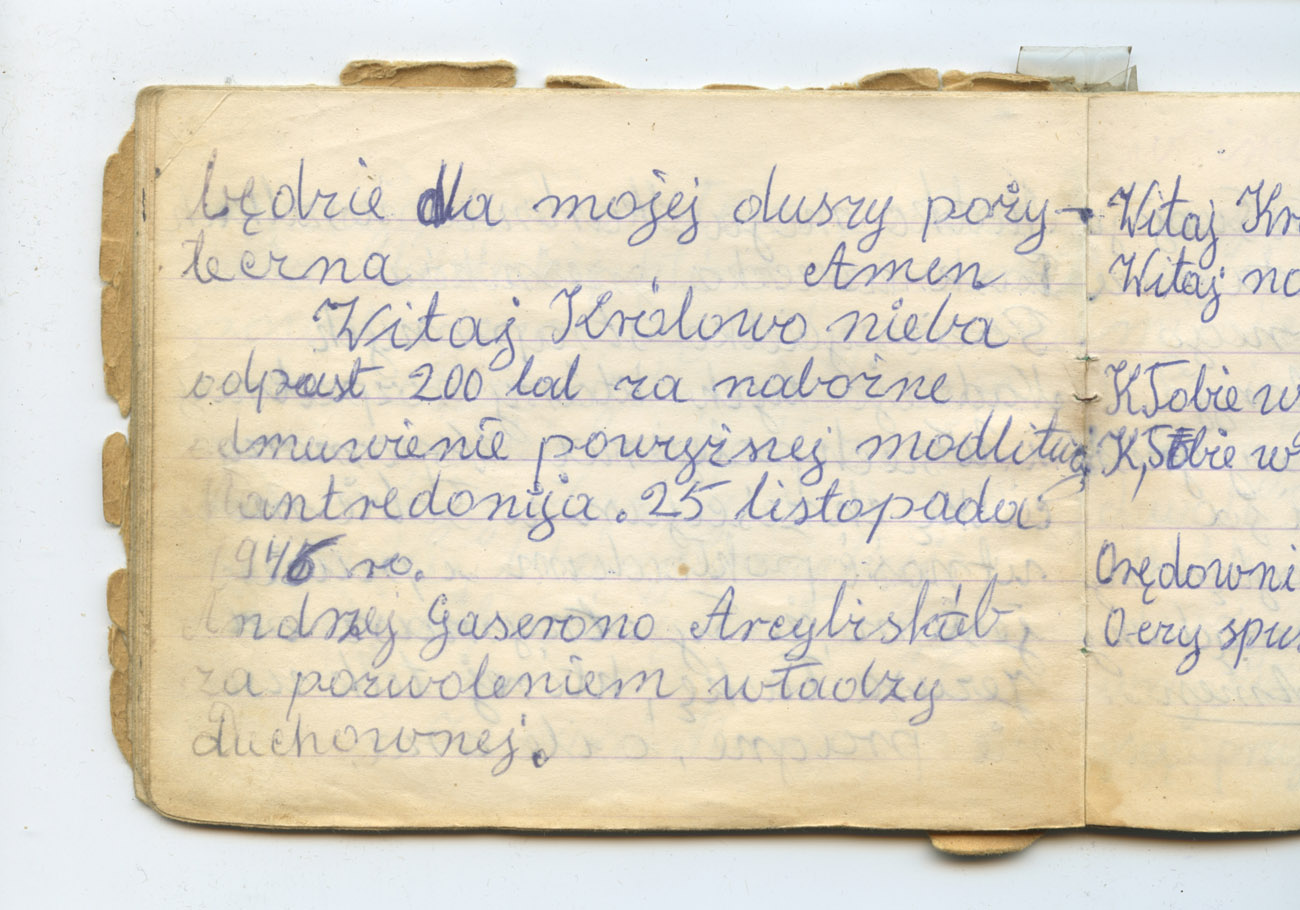 będzie dla mojej duszy poży-
teczna Amen
Witaj Królowo nieba
odpust 200 lat za nabożne
odmuwienie powyższej modlitwy
Mantredonija. 25 listopada
1946 ro.
Andrzej Gaserono Arcybiskub
za pozwoleniem władzy
duchownej.
Witaj Kr
Witaj na
K Tobie w
K, Tobie w
Orędowni
Oczy spus